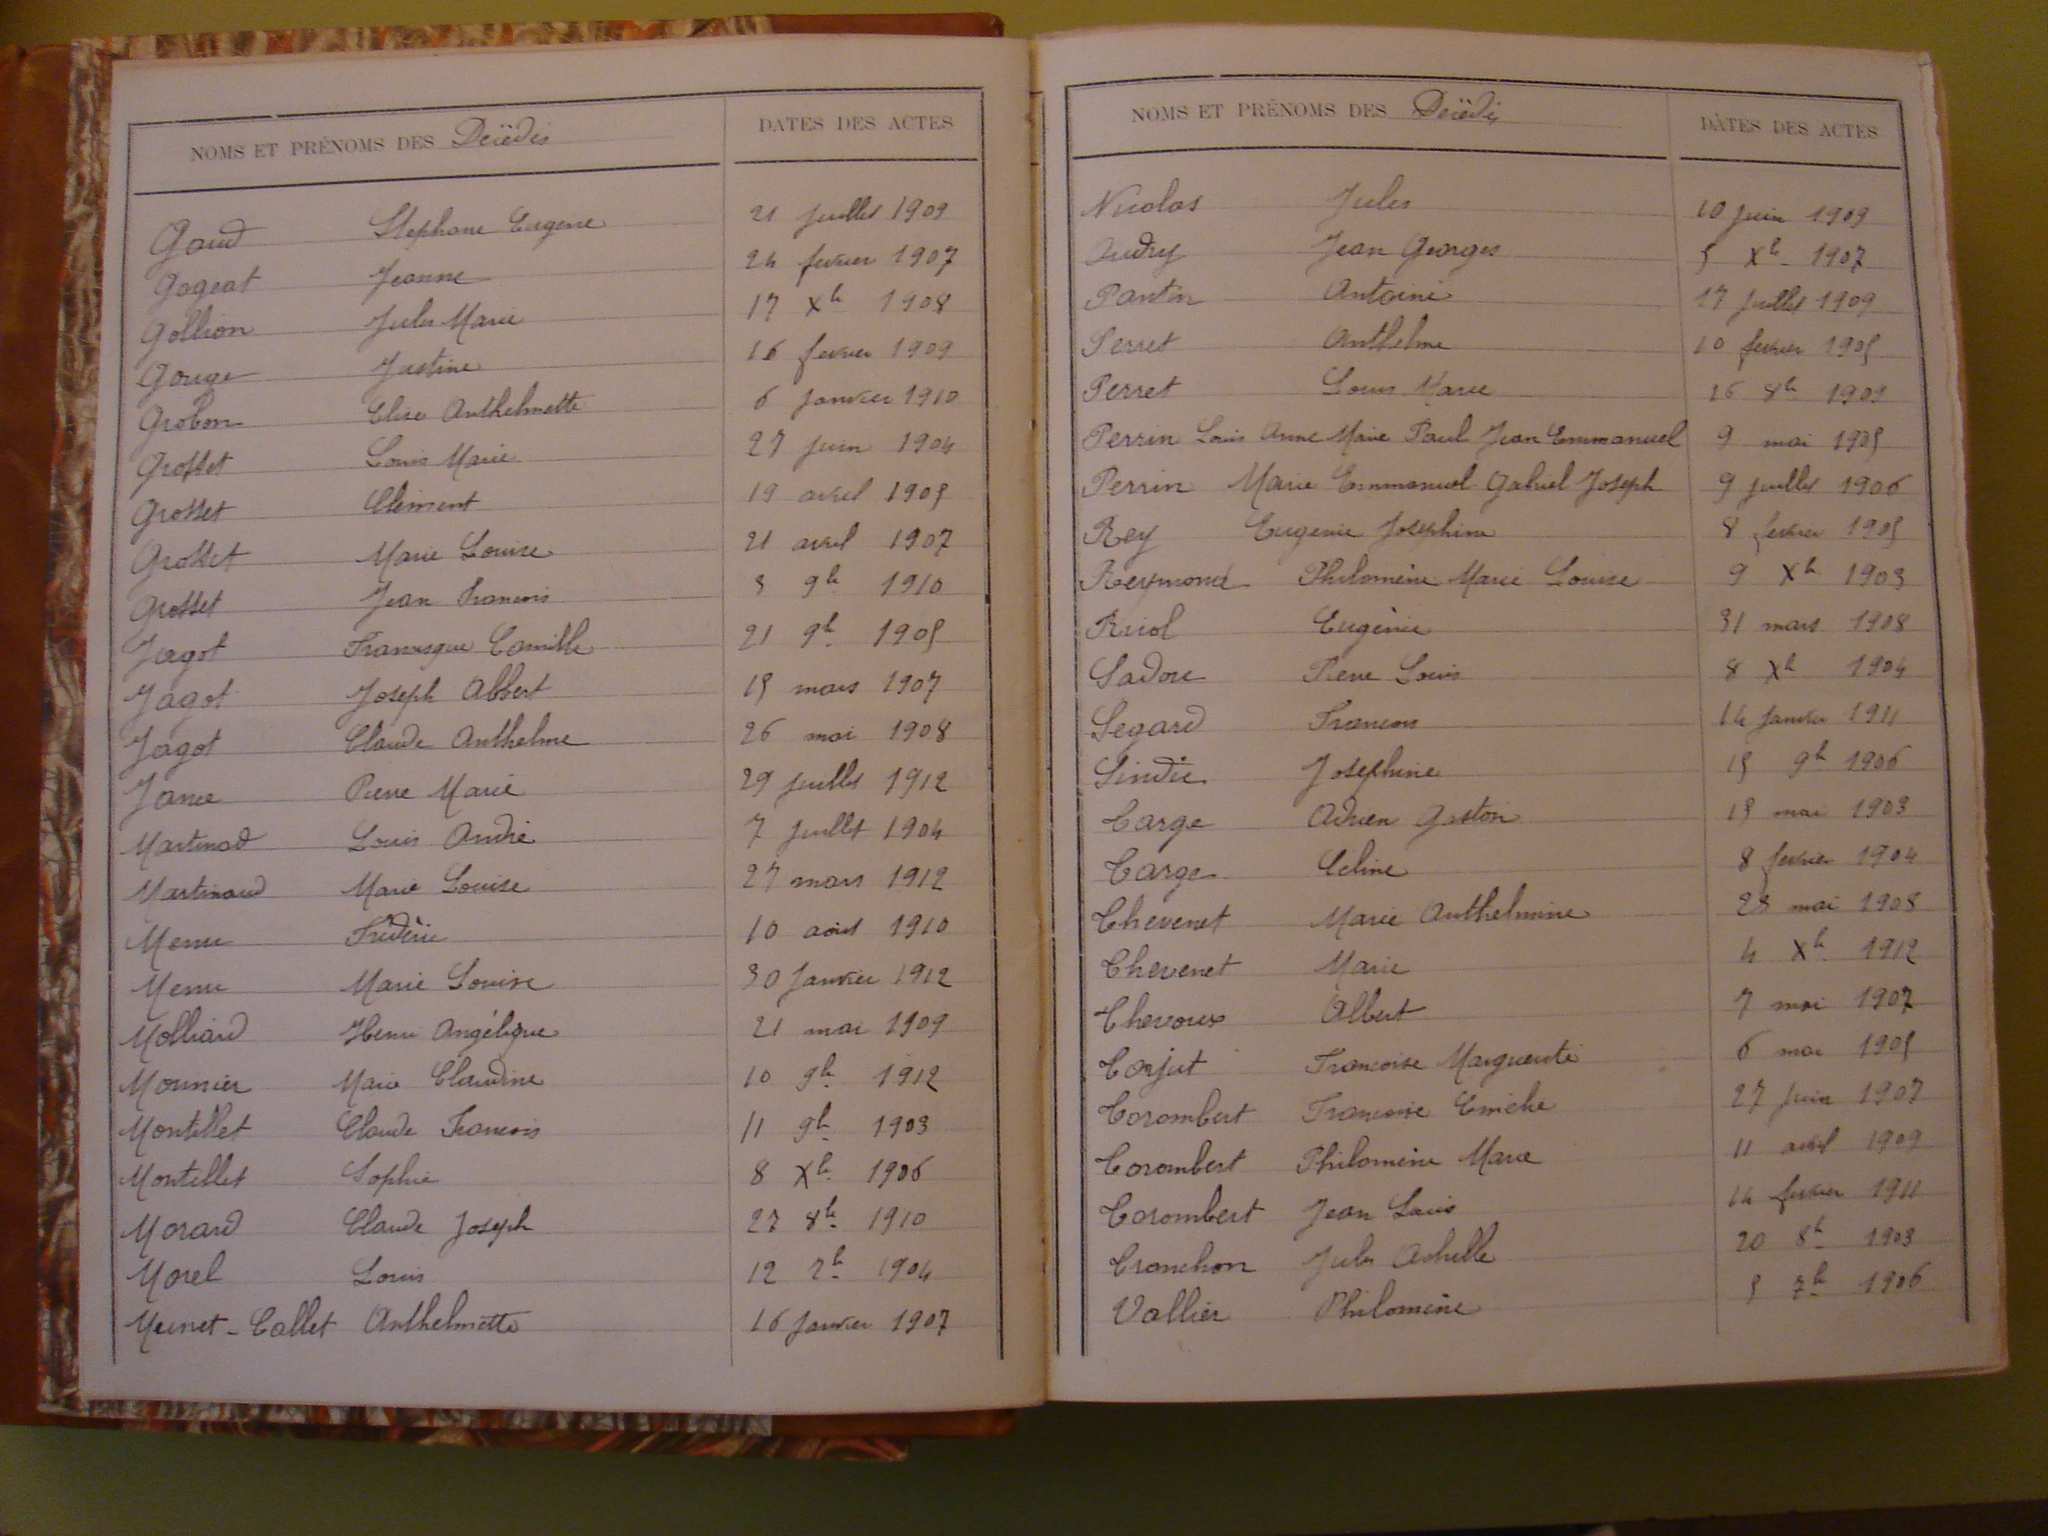 NOMS ET PRÉNOMS DES Décédés DATES DES ACTES
Gaud Stephane Eugene 21 juillet 1909
Gogeat Jeanne 24 fevrier 1907
Gollion Jules Marie 17 Xbre 1908
Gouge Justine 16 fevrier 1909
Grobon Elise Anthelmette 6 janvier 1910
Grosset Louis Marie 27 juin 1904
Grosset Clément 19 avril 1905
Grosset Marie Louise 21 avril 1907
Grosset Jean Francois 3 9bre 1910
Jagot Francisque Camille 21 9bre 1905
Jagot Joseph Albert 15 mars 1907
Jagot Claude Anthelme 26 mai 1908
Pierre Marie 29 juillet 1912
Martinod Louis André 7 juillet 1904
Martinaud Marie Louise 27 mars 1912
Menu Fréderic 10 aout 1910
Menu Marie Louise 30 janvier 1912
Molliard Henri Angélique 21 mai 1909
Mounier Marie Claudine 10 9bre 1912
Montillet Claude Francois 11 9bre 1903
Montillet Sophie 8 Xbre 1906
Morard Claude Joseph 27 8bre 1910
Morel Louis 12 1904
Collet Anthelmette 16 janvier 1907
NOMS ET PRÉNOMS DES Décédés DATES DES ACTES
Nicolas Jules 10 juin 1909
Audry Jean Georges 5 Xbre 1907
Pantin Antoine 17 juillet 1909
Perret Anthelme 10 fevrier 1905
Perret Louis Marie 16 8bre
Perrin Louis Anne Marie Paul Jean Emmanuel 9 mai 1905
Perrin Marie Emmanuel Gabriel Joseph 9 juillet 1906
Rey Eugenie Josephine 8 fevrier 1905
Reymond Philomène Marie Louise 9 Xbre 1903
Riol Eugénie 31 mars 1908
Louis 8 Xbre 1904
Segard Francois 14 janvier 1911
Sindic Josephine 15 9bre 1906
Targe Adrien Gaston 15 mai 1903
Targe Celine 8 fevrier 1904
Thevenet Marie Anthelmine 28 mai 1908
Thevenet Marie 4 Xbre 1912
Thevoux Albert 7 mai 1907
Torjut Francoise Marguerite 6 mai 1905
Torombert Francoise 27 juin 1907
Torombert Philomène Marie 11 avril 1909
Torombert Jean Louis 14 fevrier 1911
Tronchon Jules Achille 20 8bre 1903
Vallier Philomène 5 7bre 1906